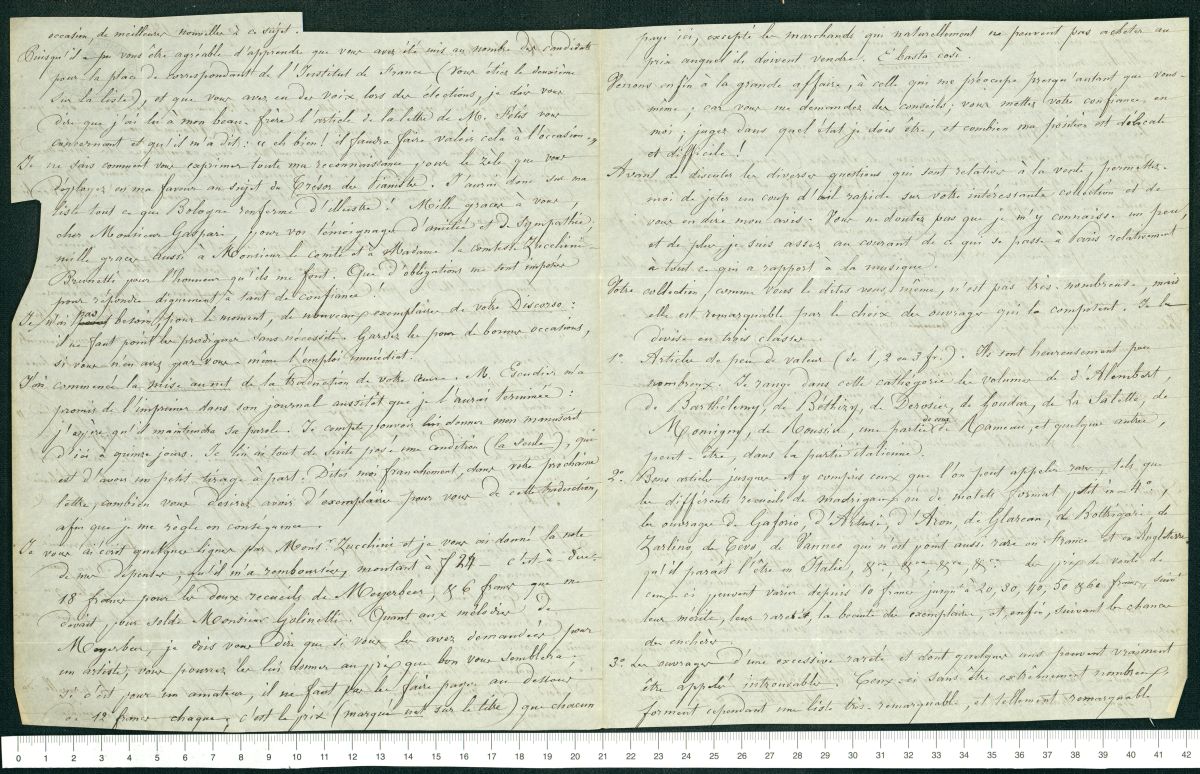 occasion, de meilleures nouvelles à ce sujet.
Puisqu'il a pu vous être agréable d'apprendre que vous avez été mis au nombre des candidats
pour la place de correspondant de l'Institut de France (vous étiez le deuxième
sur la liste), et que vous avez eu des voix lors des élections, je dois vous
dire que j'ai lu à mon beau-frère l'article de la lettre de M. Fétis vous
concernant et qu'il m'a dit: « eh bien! il faudra faire valoir cela à l'occasion. »
Je ne sais comment vous exprimer toute ma reconnaissance pour le zèle que vous
déployez en ma faveur au sujet du Trésor des Pianistes. J'aurai donc sur ma
liste tout ce que Bologne renferme d'illustre! Mille grâces à vous,
cher Monsieur Gaspari, pour vos témoignages d'amitié et de sympathie,
mille grâces aussi à Monsieur le comte et à Madame la comtesse Zucchini-
Brunetti pour l'honneur qu'ils me font. Que d'obligations me sont imposées
pour répondre dignement à tant de confiance!
Je n'ai pas besoin, pour le moment, de nouveaux exemplaires de votre Discorso:
il ne faut point les prodiguer sans nécessité. Gardez les pour de bonnes occasions,
si vous n'en avez pas vous-même l'emploi immédiat.
J'ai commencé la mise au net de la traduction de votre œuvre. M. Escudier m'a
promis de l'imprimer dans son journal aussitôt que je l'aurai terminée:
j'espère qu'il maintiendra sa parole. Je compte pouvoir lui donner mon manuscrit
d'ici à quinze jours. Je lui ai tout de suite posé une condition (la seule), qui
est d'avoir un petit tirage à part. Dites moi franchement, dans votre prochaine
lettre, combien vous désirez avoir d'exemplaires pour vous de cette traduction,
afin que je me règle en conséquence.
Je vous ai écrit quelques lignes par Monsr. Zucchini et je vous ai donné la note
de mes dépenses, qu'il m'a remboursées, montant à f 24 — c'est-à-dire
18 francs pour les deux recueils de Meyerbeer, & 6 francs que me
devait, pour solde Monsieur Golinelli. Quant aux mélodies de
Meyerbeer, je dois vous dire que si vous les avez demandées pour
un artiste, vous pourrez les lui donner au prix que bon vous semblera;
si c'est pour un amateur, il ne faut pas les faire payer au dessous
de 12 francs chaque; c'est le prix (marqué net sur le titre) que chacun
paye ici, excepté les marchands qui naturellement ne peuvent pas acheter au
prix auquel ils doivent vendre. E basta così.
Venons enfin à la grande affaire, à celle qui me préocupe presqu'autant que vous-
même; car vous me demandez des conseils, vous mettez votre confiance en
moi; jugez dans quel état je dois être et combien ma position est délicate
et difficile!
Avant de discuter les diverses questions qui sont relatives à la vente, permettez-
moi de jeter un coup d'œil rapide sur votre intéressante collection et de
vous en dire mon avis. Vous ne doutez pas que je m'y connaisse un peu,
et de plus je suis assez au courant de ce qui se passe à Paris relativement
à tout ce qui a rapport à la musique.
Votre collection, comme vous le dites vous même, n'est pas très-nombreuse, mais
elle est remarquable par le choix des ouvrages qui la composent. Je la
divise en trois classes.
1o. Articles de peu de valeur (de 1, 2 ou 3 fr.). Ils sont heureusement peu
nombreux. Je range dans cette cathégorie les volumes de d'Alembert,
de Barthélemy, de Béthizy, de Derosier, de Goudar, de La Salette, de
Momigny, de Roussier, une partie de ceux de Rameau, et quelques autres,
peut-être, dans la partie italienne.
2o. Bons articles jusques et y compris ceux que l'on peut appeler rares, tels que
les différents recueils de madrigaux ou de motets format petit in-4o,
les ouvrages de Gaforio, d'Artusi, d'Aron, de Glarean, de Bottrigari, de
Zarlino, de Tevo, de Vanneo qui n'est point aussi rare en France et en Angleterre
qu'il paraît l'être en Italie, &ca, &ca, &ca, &ca. Les prix de vente de
ceux-ci peuvent varier depuis 10 francs jusqu'à 20, 30, 40, 50 & 60 francs, suivt.
leur mérite, leur rareté, la beauté des exemplaires, et, enfin, suivant les chances
des enchères.
3o. Les ouvrages d'une excessive rareté et dont quelques uns peuvent vraiment
être appelés introuvables. Ceux-ci sans être extrêmement nombreux,
forment cependant une liste très-remarquable, et tellement remarquable
0 1 2 3 4 5 6 7 8 9 10 11 12 13 14 15 16 17 18 19 20 21 22 23 24 25 26 27 28 29 30 31 32 33 34 35 36 37 38 39 40 41 42